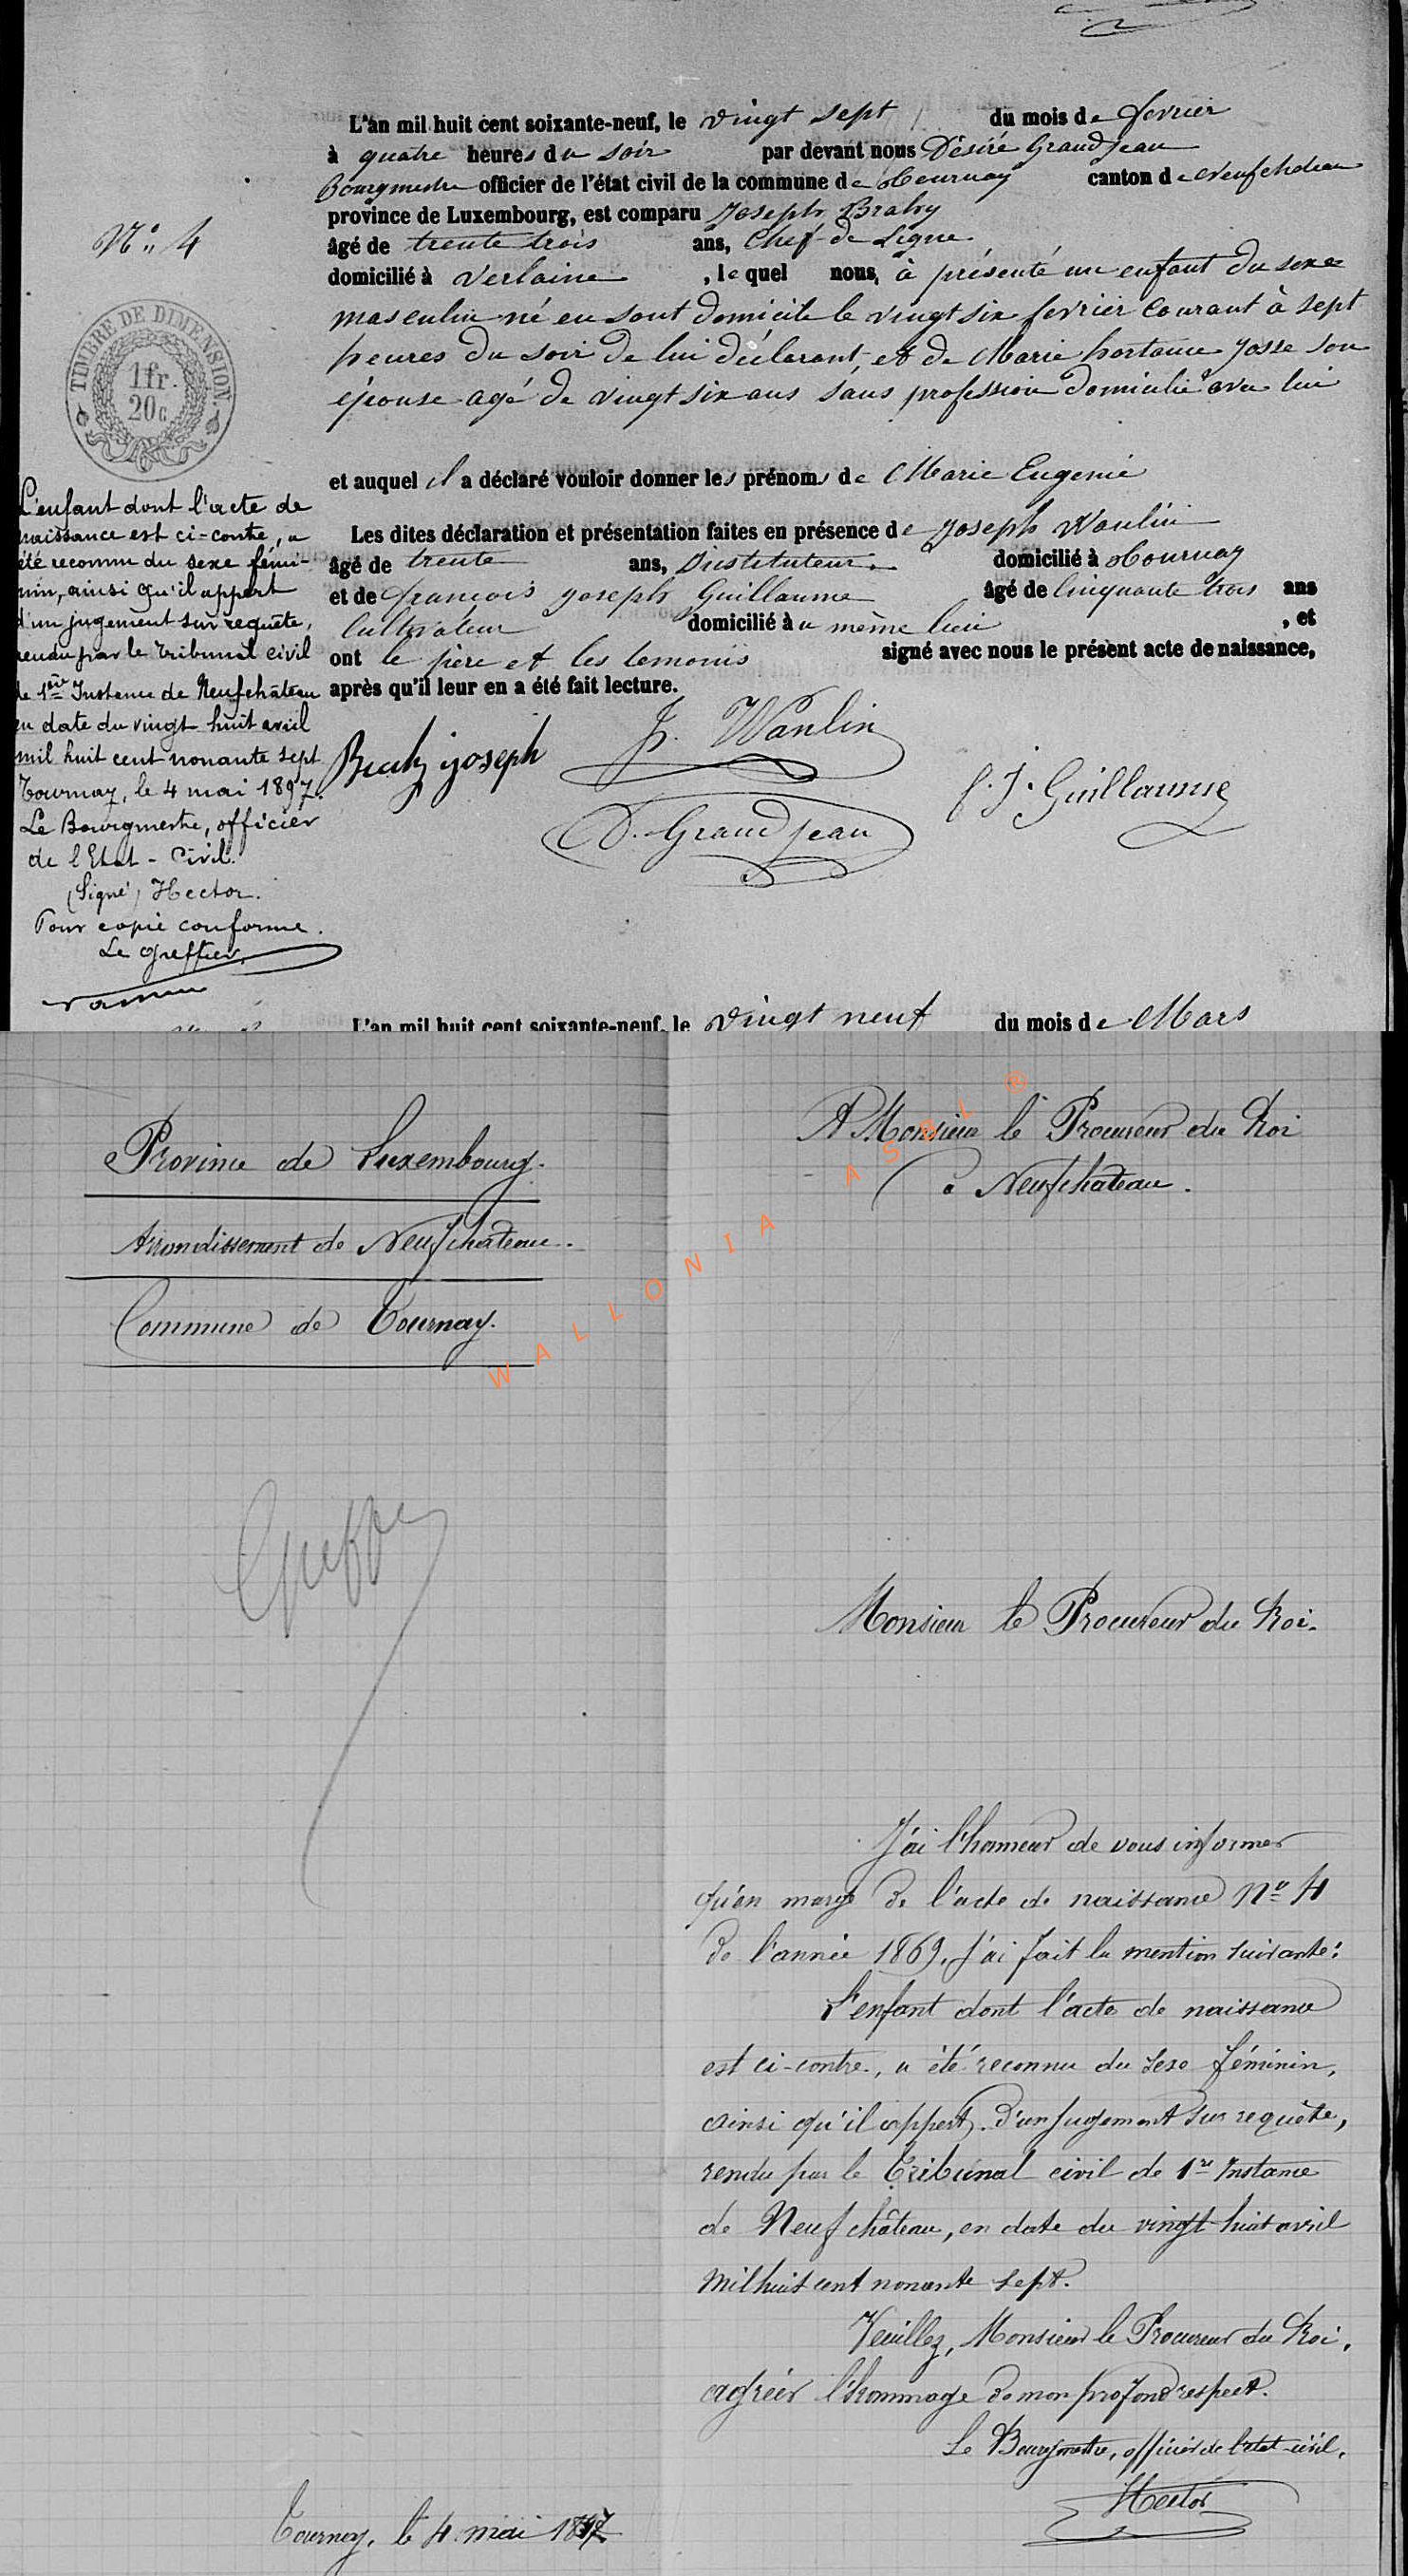 L'an mil huit cent soixante-neuf, le vingt sept du mois de fevrier
à quatre heures du soir par devant nous Désiré Grandjean
Bourgmestre officier de l'état civil de la commune de Tournay canton de Neufchateau
province de Luxembourg, est comparu Joseph Braby
âgé de trente trois ans, Chef de Ligne
domicilié à Verlaine, lequel nous, à présenté un enfant du sexe
masculin né en sont domicile le vingt six fevrier courant à sept
heures du soir de lui déclarant, et de Marie hortance Josse son
épouse agé de vingt six ans sans profession domicilié avec lui
et auquel il a déclaré vouloir donner les prénoms de Marie Eugenie
Les dites déclaration et présentation faites en présence de Joseph Wanlin
âgé de trente ans, Instituteur, domicilié à Tournay
et de françois joseph Guillaume âgé de Cinquante trois ans
Cultivateur domicilié à u même lieu, et
ont le père et les temoins signé avec nous le présent acte de naissance,
après qu'il leur en a été fait lecture.
Joseph
J. Wanlin
f. J. Guillaume
D. Grandjean
N° 4
TIMBRE DE DIMENSION
1 fr.
20 c
L'enfant dont l'acte de
naissance est ci-contre, a
été reconnu du sexe fémi-
nin, ainsi qu'il appert
d'un jugement sur requête,
rendu par le Tribunal civil
de 1ère Instance de Neufchâteau
en date du vingt huit avril
mil huit cent nonante sept
Tournay, le 4 mai 1897.
Le Bourgmestre, officier
de l'Etat-Civil.
(Signé) Hector.
Pour copie conforme.
Le Greffier,
L'an mil huit cent soixante-neuf, le vingt neuf du mois de Mars
Province de Luxembourg.
Arrondissement de Neufchâteau.
Commune de Tournay.
Greffe
WALLONIA ASBL ®
A Monsieur le Procureur du Roi
à Neufchateau.
Monsieur le Procureur du Roi.
J'ai l'honneur de vous informer
qu'en marge de l'acte de naissance N° 4
de l'année 1869, j'ai fait la mention suivante:
L'enfant dont l'acte de naissance
est ci-contre, a été reconnu du sexe féminin,
ainsi qu'il appert d'un jugement sur requête,
rendu par le Tribunal civil de 1re Instance
de Neufchâteau, en date du vingt huit avril
mil huit cent nonante sept.
Veuillez, Monsieur le Procureur du Roi,
agréer l'hommage de mon profond respect.
Le Bourgmestre, officier de l'état-civil,
Hector
Tournay, le 4 mai 1897